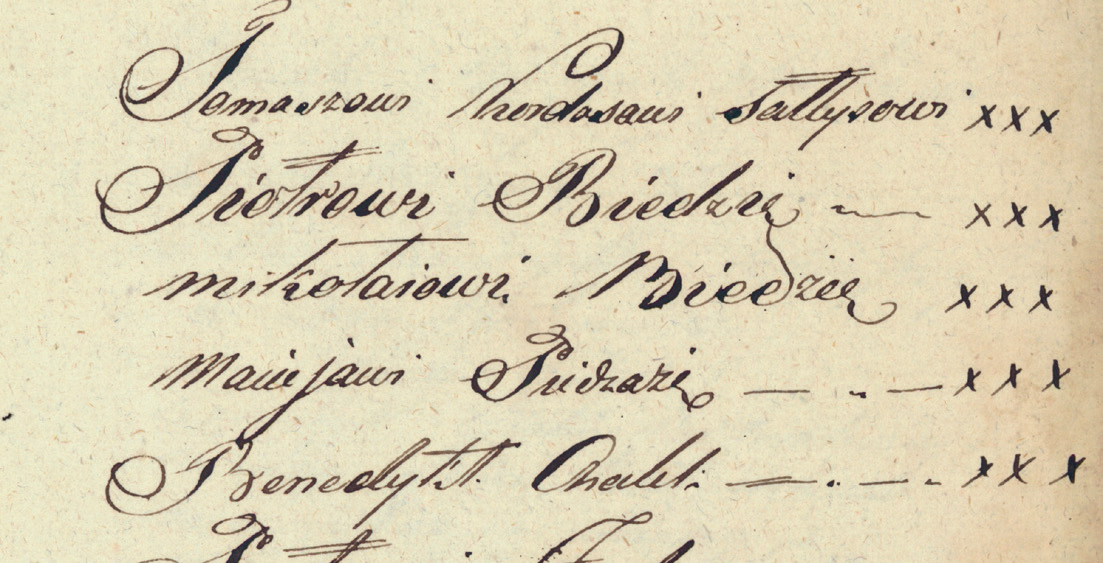 Tomaszowi Kordasowi Sałtysowi xxx
Piotrowi Biedzie xxx
mikołaiowi Biedzie xxx
Maciejowi xxx
Benedykt. xxx